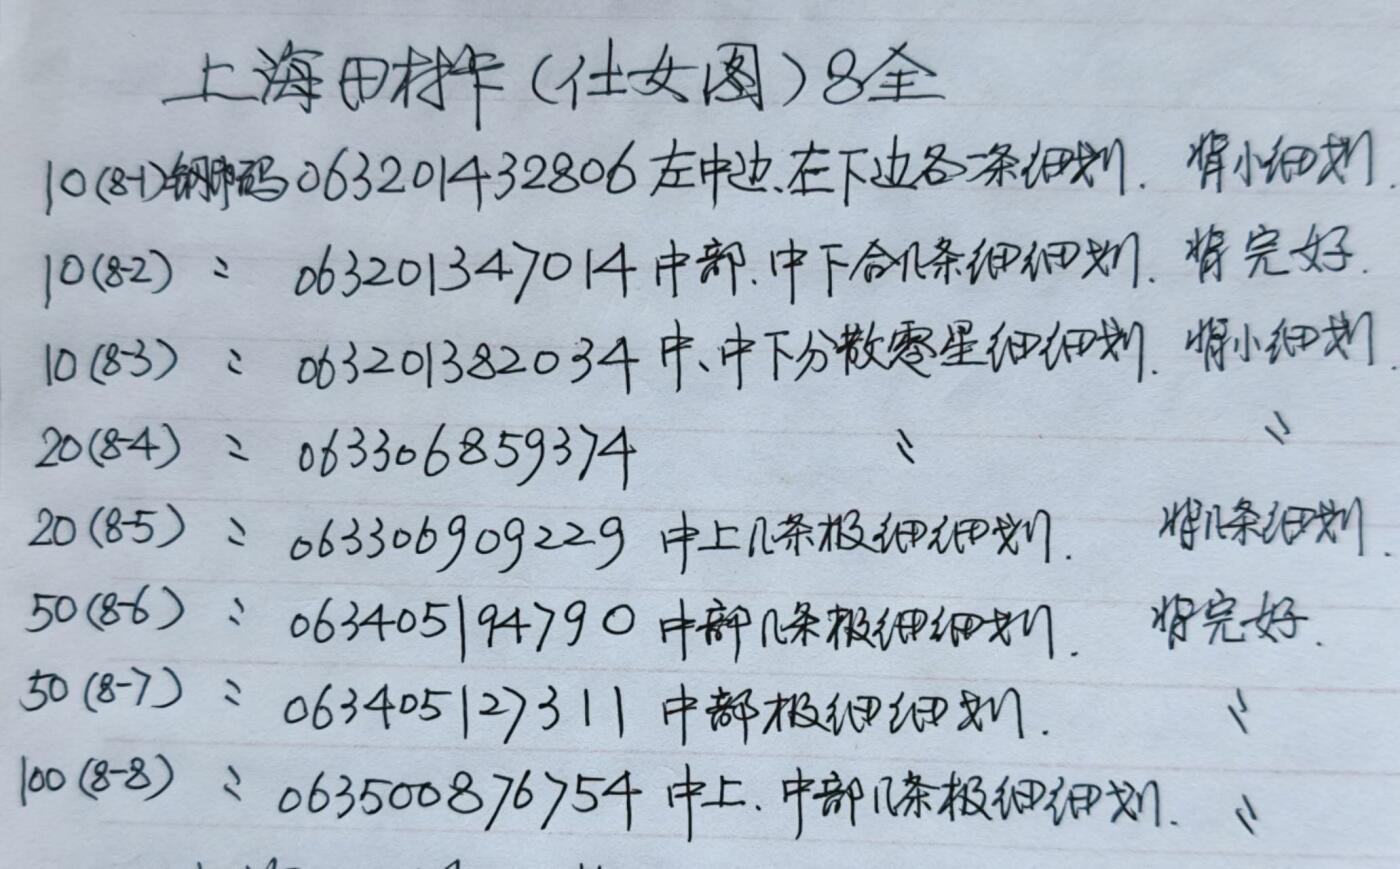 上海田村卡（仕女图）8全
10(8-1)钢印码 063201432806 左中边、左下边各一条细划. 背小细划.
10(8-2) 〃 063201347014 中部.中下合几条细细划. 背完好.
10(8-3) 〃 063201382034 中、中下分散零星细细划. 背小细划.
20(8-4) 〃 063306859374 〃 〃
20(8-5) 〃 063306909229 中上几条极细细划. 背几条细划.
50(8-6) 〃 063405194790 中部几条极细细划. 背完好.
50(8-7) 〃 063405127311 中部极细细划. 〃
100(8-8) 〃 063500876754 中上.中部几条极细细划. 〃